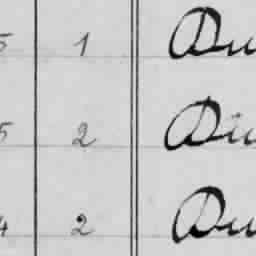 5 1 Du
5 2 Du
4 2 Du